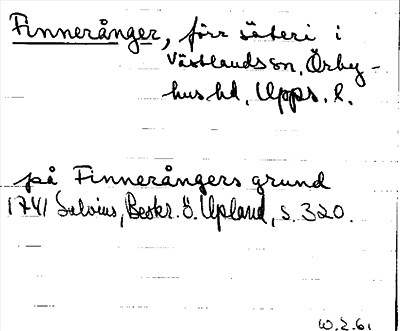 Finnerånger, förr säteri i
Västlands sn, Örby-
hus hd, Upps. l.
på Finnerångers grund
1741 Salvius, Beskr. ö. Upland, s. 320.
W.Z. 61